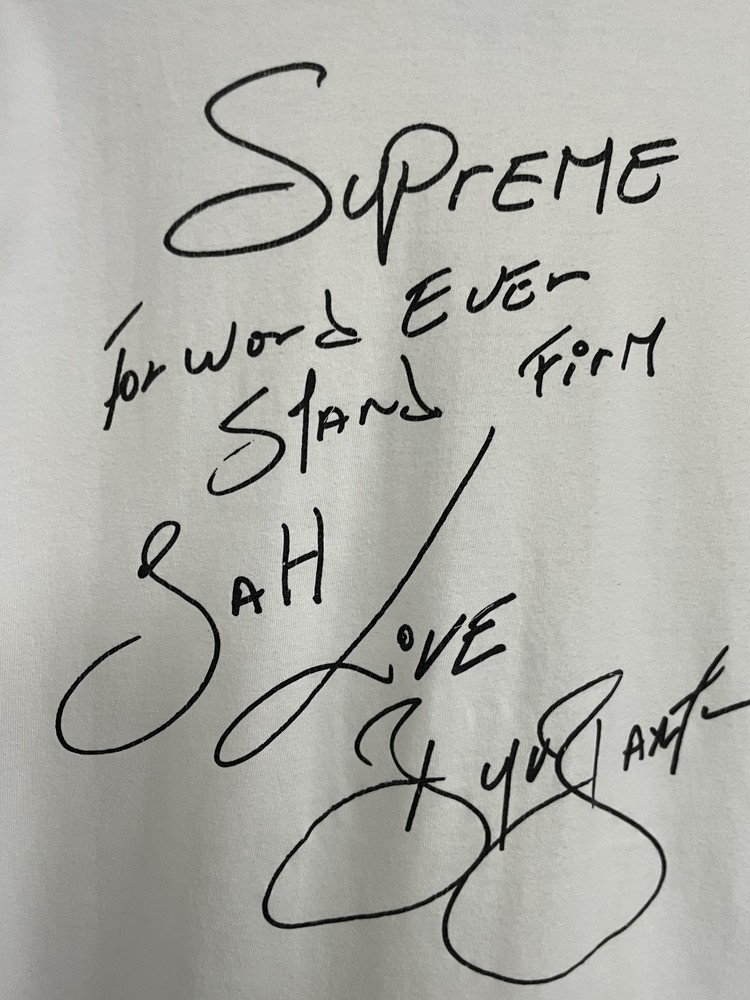 SuPrEME
forword EVEr
STAND FirM
JAH LOVE